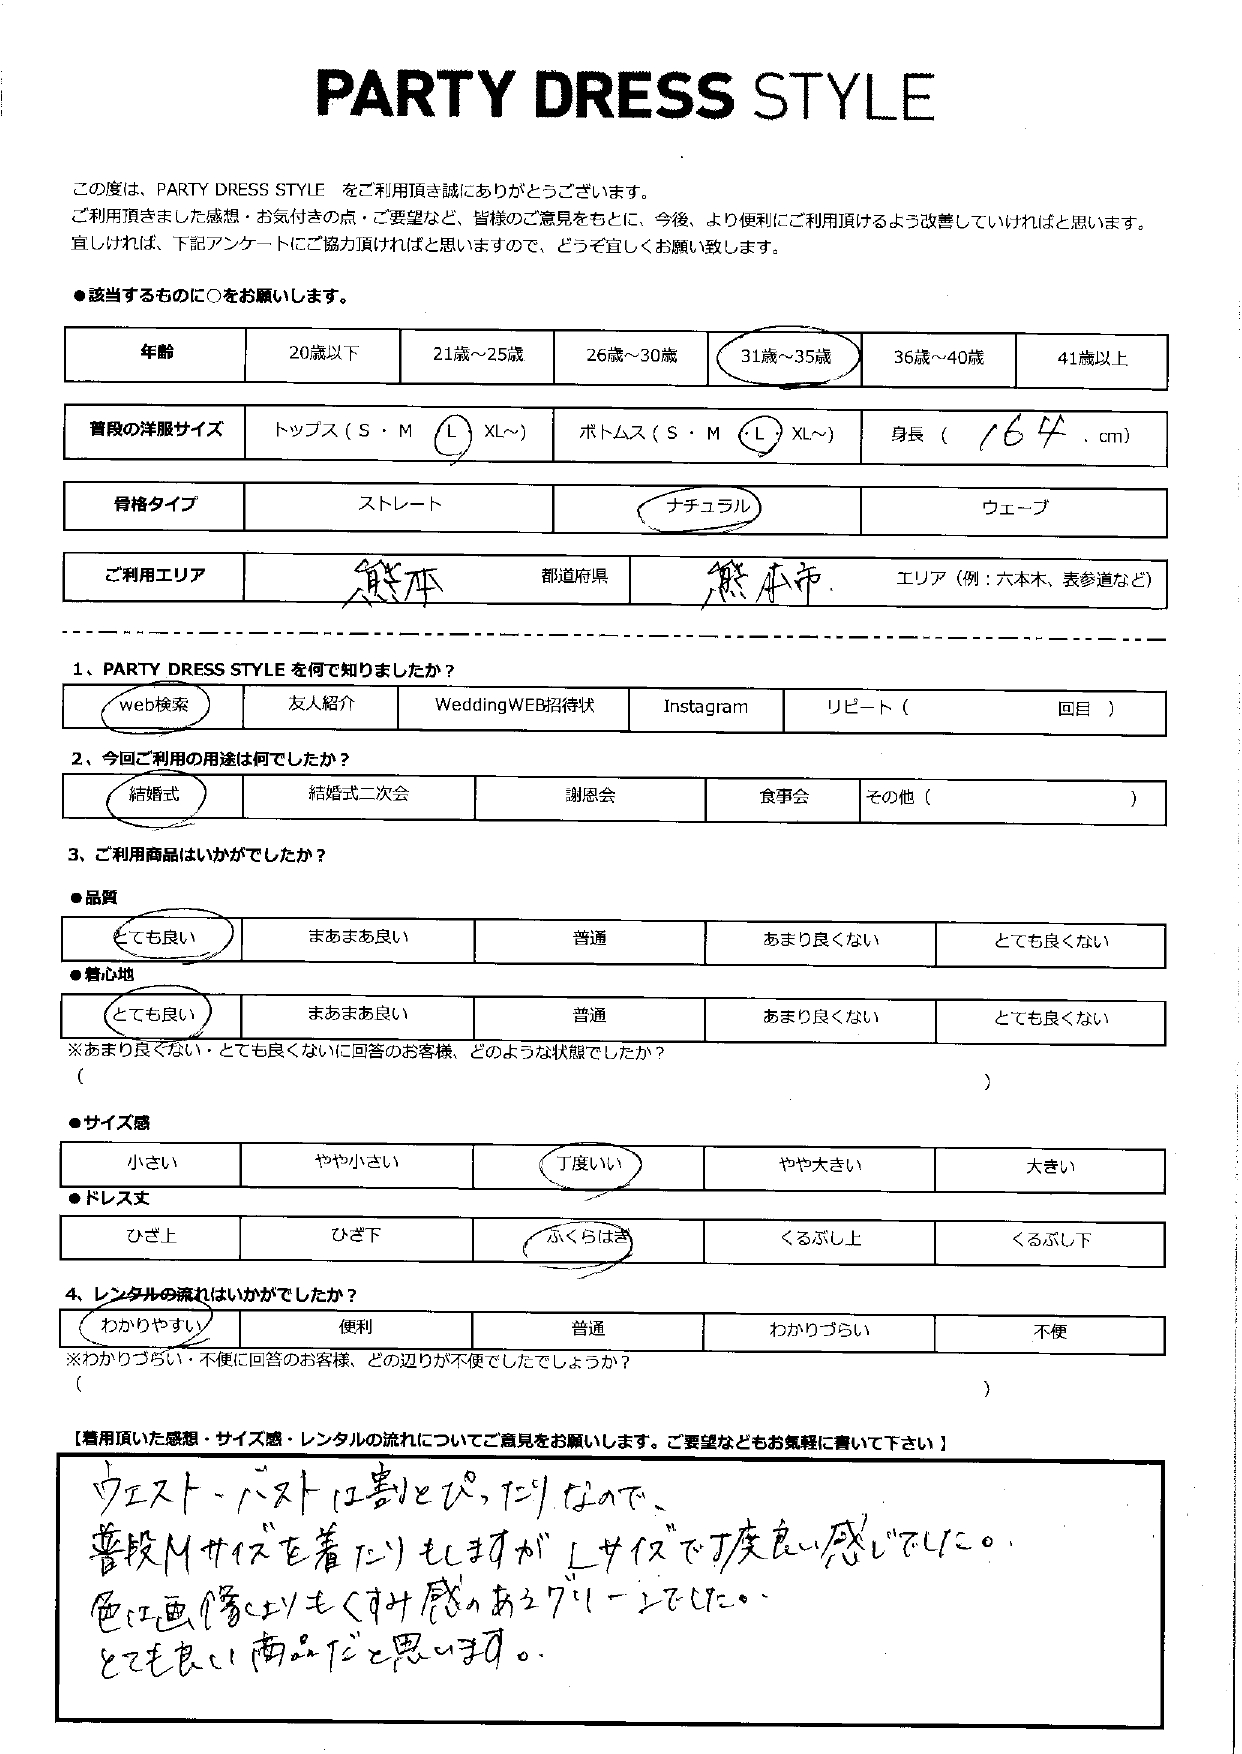 PARTY DRESS STYLE
この度は、PARTY DRESS STYLE をご利用頂き誠にありがとうございます。
ご利用頂きました感想・お気付きの点・ご要望など、皆様のご意見をもとに、今後、より便利にご利用頂けるよう改善していければと思います。
宜しければ、下記アンケートにご協力頂ければと思いますので、どうぞ宜しくお願い致します。
●該当するものに○をお願いします。
年齢 20歳以下 21歳～25歳 26歳～30歳 31歳～35歳 36歳～40歳 41歳以上
普段の洋服サイズ トップス（S ・ M ・ L ・ XL～） ボトムス（S ・ M ・ L ・ XL～） 身長 （ 164 . cm）
骨格タイプ ストレート ナチュラル ウェーブ
ご利用エリア 熊本 都道府県 熊本市. エリア（例：六本木、表参道など）
1、PARTY DRESS STYLE を何で知りましたか？
web検索 友人紹介 WeddingWEB招待状 Instagram リピート（ 回目 ）
2、今回ご利用の用途は何でしたか？
結婚式 結婚式二次会 謝恩会 食事会 その他（ ）
3、ご利用商品はいかがでしたか？
●品質
とても良い まあまあ良い 普通 あまり良くない とても良くない
●着心地
とても良い まあまあ良い 普通 あまり良くない とても良くない
※あまり良くない・とても良くないに回答のお客様、どのような状態でしたか？
（ ）
●サイズ感
小さい やや小さい 丁度いい やや大きい 大きい
●ドレス丈
ひざ上 ひざ下 ふくらはぎ くるぶし上 くるぶし下
4、レンタルの流れはいかがでしたか？
わかりやすい 便利 普通 わかりづらい 不便
※わかりづらい・不便に回答のお客様、どの辺りが不便でしたでしょうか？
（ ）
【着用頂いた感想・サイズ感・レンタルの流れについてご意見をお願いします。ご要望などもお気軽に書いて下さい】
ウエスト・バストは割とぴったりなので、
普段Mサイズを着たりもしますが Lサイズで丁度良い感じでした。
色は画像よりもくすみ感のあるグリーンでした。
とても良い商品だと思います。